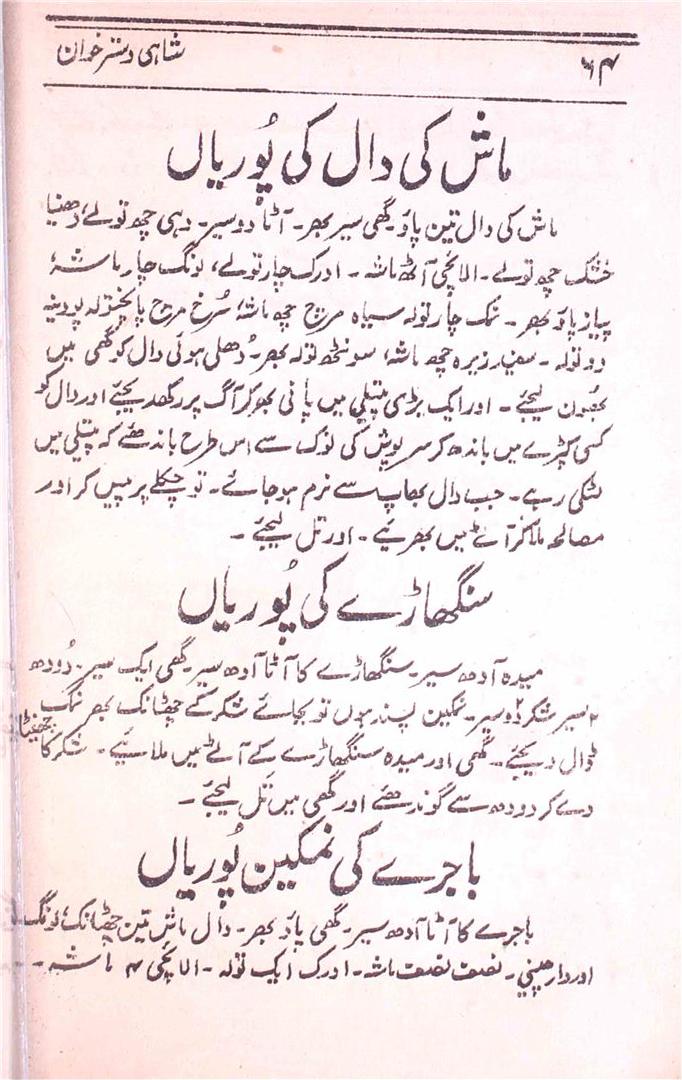 ۶۴
شاہی دسترخوان
ماش کی دال کی پُوریاں
ماش کی دال تین پاؤ۔ گھی سیر بھر۔ آٹا دو سیر۔ دہی چھ تولے، دھنیا
خشک چھ تولے۔ الائچی آٹھ ماشہ۔ ادرک چار تولے، لونگ چار ماشہ
پیاز پاؤ بھر۔ نمک چار تولہ سیاہ مرچ چھ ماشہ، سُرخ مرچ پانچ تولہ پودینہ
دو تولہ۔ سفید زیرہ چھ ماشہ، سونٹھ تولہ بھر۔ دُھلی ہوئی دال کو گھی میں
بھون لیجئے۔ اور ایک بڑی پتیلی میں پانی بھر کر آگ پر رکھ دیجئے اور دال کو
کسی کپڑے میں باندھ کر سرپوش کی نوک سے اس طرح باندھئے کہ پتیلی میں
لٹکی رہے۔ جب دال بھاپ سے نرم ہو جائے۔ تو چکلے پر پیس کر اور
مصالحہ ملا کر آٹے میں بھریئے۔ اور تل لیجئے۔
سنگھاڑے کی پُوریاں
میدہ آدھ سیر۔ سنگھاڑے کا آٹا آدھ سیر۔ گھی ایک سیر۔ دُودھ
۲ سیر شکر دو سیر۔ نمکین پسند ہوں تو بجائے شکر کے چھٹانک بھر نمک
ڈال دیجئے۔ گھی اور میدہ سنگھاڑے کے آٹے میں ملائیے۔ شکر کا چھینٹا
دے کر دودھ سے گوندھئے اور گھی میں تَل لیجئے۔
باجرے کی نمکین پُوریاں
باجرے کا آٹا آدھ سیر۔ گھی پاؤ بھر۔ دال ماش تین چھٹانک، لونگ
اور دارچینی۔ نصف نصف ماشہ۔ ادرک ایک تولہ۔ الائچی ۴ ماشہ۔